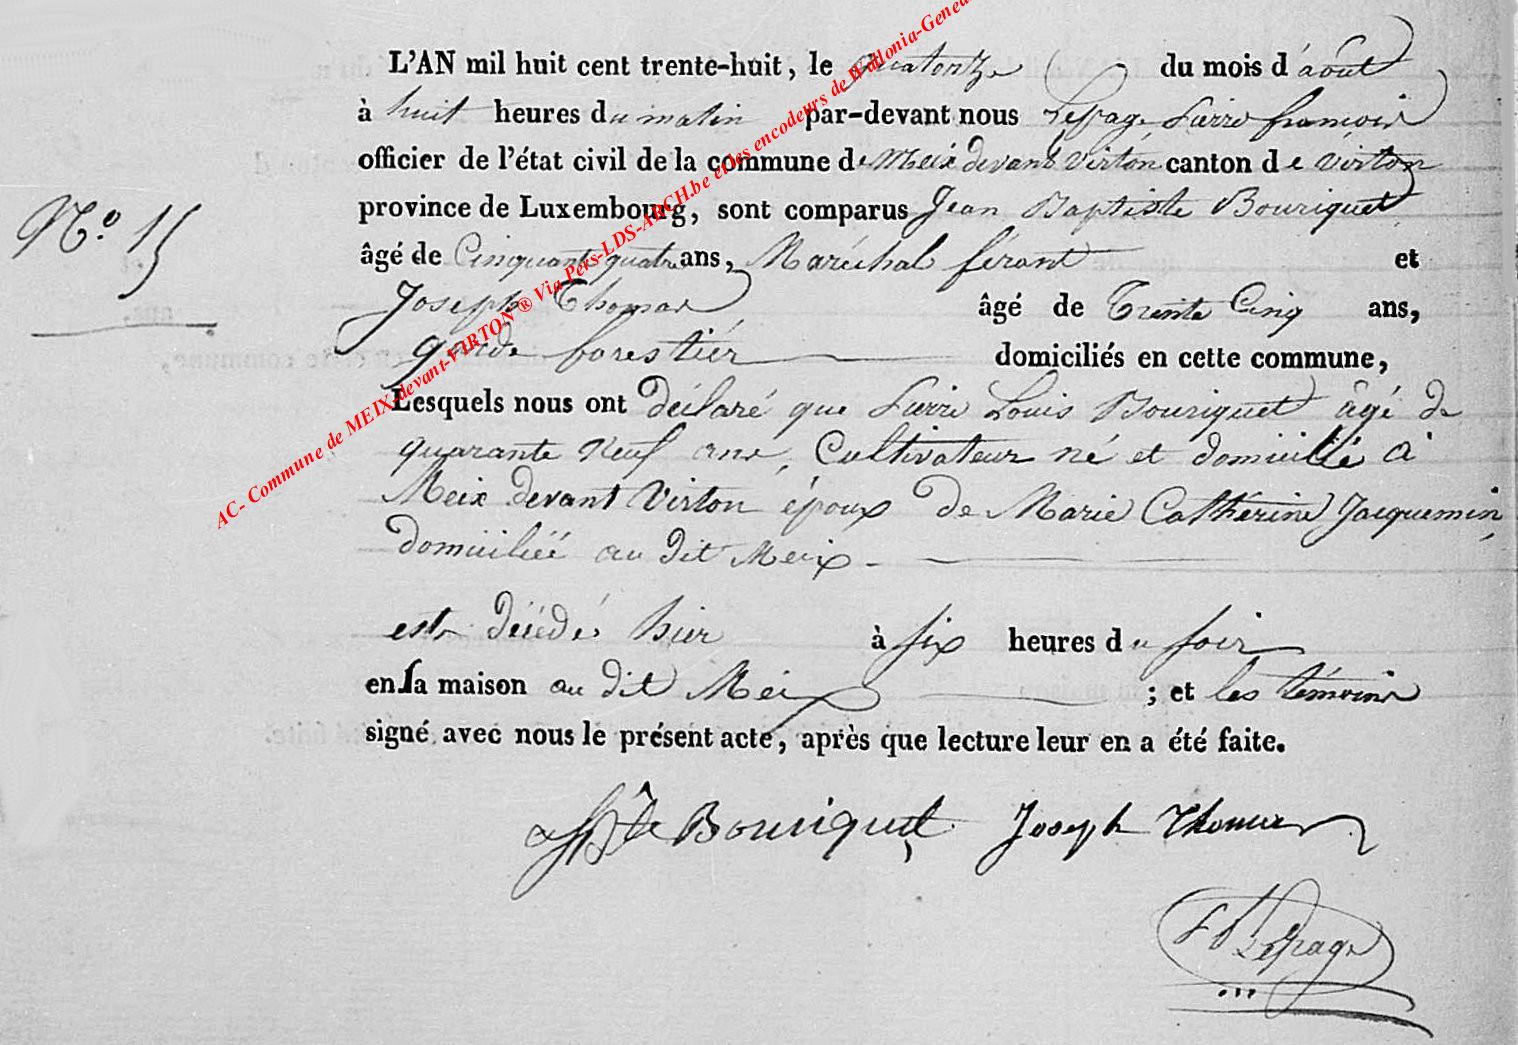 L'AN mil huit cent trente-huit, le quatorze du mois d'août
à huit heures du matin par-devant nous Lepage Pierre françois
officier de l'état civil de la commune de Meix devant Virton canton de Virton
province de Luxembourg, sont comparus Jean Baptiste Bouriquet
N.° 15
âgé de Cinquante quatre ans, Maréchal férant et
Joseph Thomas âgé de Trente Cinq ans,
garde forestiér domiciliés en cette commune,
Lesquels nous ont déclaré que Pierre Louis Bouriquet âgé de
quarante neuf ans, Cultivateur né et domicilié à
Meix devant Virton époux de Marie Cathérine Jacquemin,
domiciliéé au dit Meix.
est décédé hier à six heures du soir
en sa maison au dit Meix ; et les témoins
signé avec nous le présent acte, après que lecture leur en a été faite.
Bouriquet Joseph Thomas
Lepage
AC- Commune de MEIX-devant-VIRTON® Via Pers-LDS-ARCH.be et les encodeurs de Wallonia-Genea